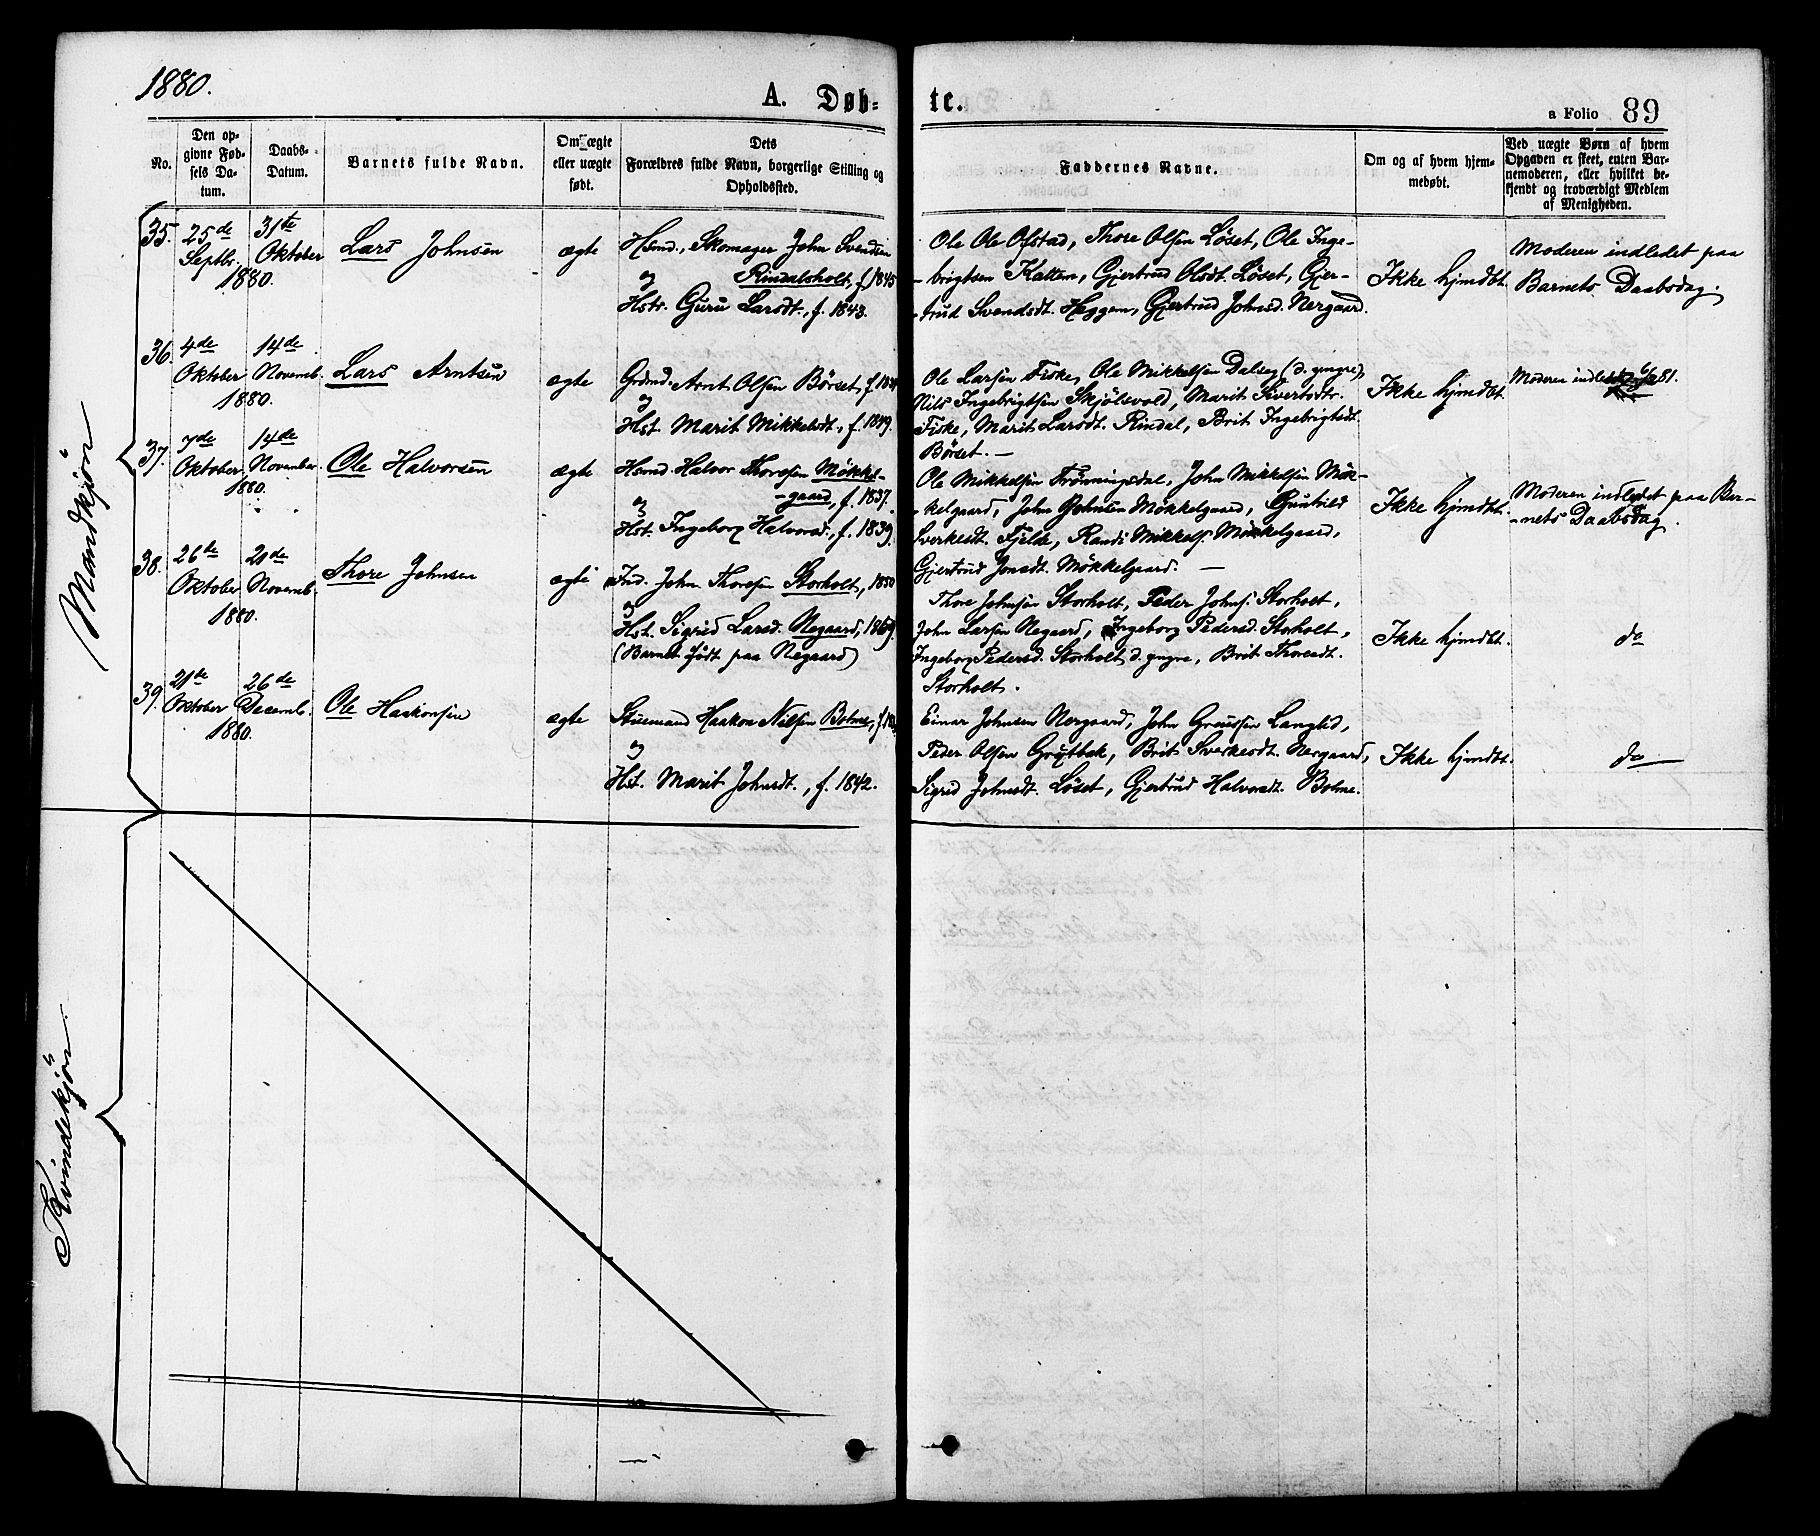 1880.
A. Døb-
te.
a Folio 89
No.
Den op-
givne Fød-
sels Da-
tum.
Daabs-
Datum.
Barnets fulde Navn.
Om ægte
eller uægte
født.
Dets
Forældres fulde Navn, borgerlige Stilling og
Opholdssted.
Faddernes Navne.
Om og af hvem hjem-
medøbt.
Ved uægte Børn af hvem
Opgaven er skeet, enten Bar-
nemoderen, eller hvilket be-
kjendt og troværdigt Medlem
af Menigheden.
Mandkjön
35. 25de Septbr. 1880. 31te Oktober
Lars Johnsen
ægte
Hsmd., Skomager John Svendsen
og Rindalsholt, f. 1845
Hstr. Guru Larsdt., f. 1843.
Ole Ole Ofstad, Thore Olsen Löset, Ole Inge-
-brigtsen Kattem, Gjertrud Olsdt. Löset, Gjer-
-trud Svendsdt. Heggem, Gjertrud Johnsd. Nergaard.
Ikke hjmdbt.
Moderen indledet paa
Barnets Daabsdag.
36. 4de Oktober 1880. 14de Novemb.
Lars Arntsen
ægte
Grdmd. Arnt Olsen Börset,
og
Hst. Marit Mikkelsdt., f. 1849.
Ole Larsen Fiske, Ole Mikkelsen Dalseg (d. yngre),
Nils Ingebrigtsen Skjölsvold, Marit Sivertsdtr.
Fiske, Marit Larsdt. Rindal, Brit Ingebrigtsdt.
Börset. —
Ikke hjmdbt.
Moderen indledet 81.
37. 7de Oktober 1880. 14de November
Ole Halvorsen
ægte
Hsmd. Halvor Thoresen Mökkel-
-gaard, f. 1837.
og
Hst. Ingeborg Halvorsd., f. 1839.
Ole Mikkelsen Trönningsdal, John Mikkelsen Mök-
-kelgaard, John Johnsen Mökkelgaard, Gunhild
Sverkesdt. Fjelde, Randi Mikkelsd. Mökkelgaard,
Gjertrud Jonsdt. Mökkelgaard. —
Ikke hjmdbt.
Moderen indledet paa Bar-
-nets Daabsdag.
38. 26de Oktober 1880. 21de Novemb.
Thore Johnsen
ægte
Ind. John Thoresen Storholt, 1850
og
Hst. Sigrid Larsd. Negaard,
(Barnet født paa Negaard)
Thore Johnsen Storholt, Peder Johns. Storholt,
John Larsen Negaard, Ingeborg Pedersd. Storholt,
Ingeborg Pedersd. Storholt d. yngre, Brit Thoresdt.
Storholt.
Ikke hjmdbt.
do
39. 21de Oktober 1880. 26de Decemb.
Ole Haakonsen
ægte
Stuemand Haakon Nilsen Bolme,
og
Hst. Marit Johnsdt., f. 1842.
Einar Johnsen Nergaard, John Langlid,
Peder Olsen Grytbak, Brit Sverkesdt. Nergaard,
Sigrid Johnsdt. Löset, Gjertrud Halvorsdt. Bolme.
Ikke hjmdbt.
do
Kvindekjön.